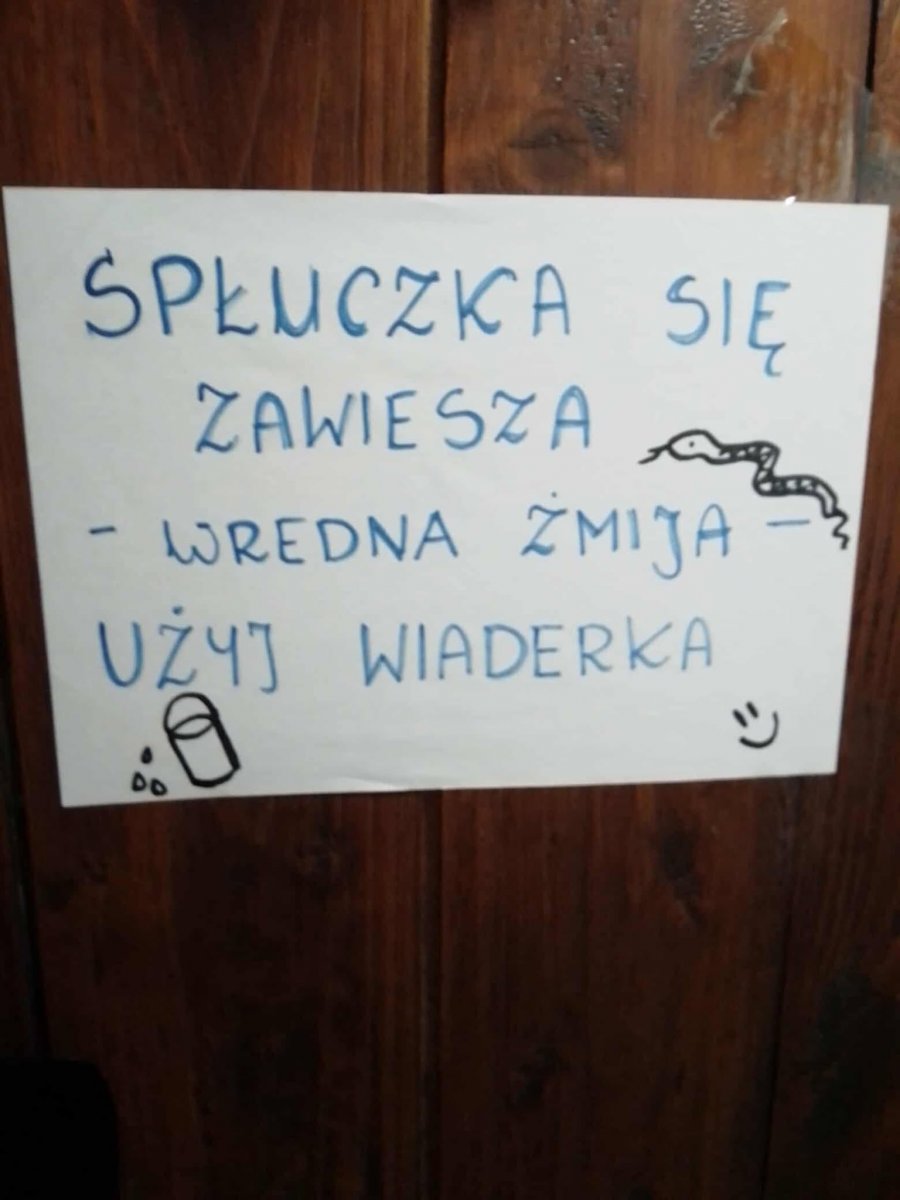 SPŁUCZKA SIĘ
ZAWIESZA
- WREDNA ŻMIJA -
UŻYJ WIADERKA